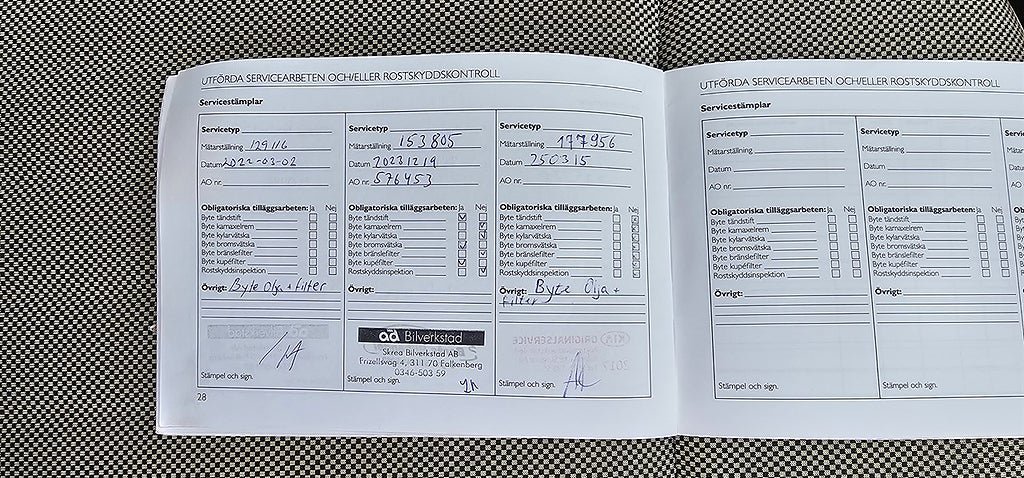 UTFÖRDA SERVICEARBETEN OCH/ELLER ROSTSKYDDSKONTROLL
Servicestämplar
Servicetyp
Mätarställning 129116
Datum 2022-03-02
AO nr.
Obligatoriska tilläggsarbeten: Ja Nej
Byte tändstift
Byte kamaxelrem
Byte kylarvätska
Byte bromsvätska
Byte bränslefilter
Byte kupéfilter
Rostskyddsinspektion
Övrigt: Byte Olja + filter
Stämpel och sign.
Servicetyp
Mätarställning 153805
Datum 20231219
AO nr. 576453
Obligatoriska tilläggsarbeten: Ja Nej
Byte tändstift
Byte kamaxelrem
Byte kylarvätska
Byte bromsvätska
Byte bränslefilter
Byte kupéfilter
Rostskyddsinspektion
Övrigt:
ad Bilverkstad
Skrea Bilverkstad AB
Frizellsväg 4, 311 70 Falkenberg
0346-503 59
Stämpel och sign.
Servicetyp
Mätarställning 177956
Datum 250315
AO nr.
Obligatoriska tilläggsarbeten: Ja Nej
Byte tändstift
Byte kamaxelrem
Byte kylarvätska
Byte bromsvätska
Byte bränslefilter
Byte kupéfilter
Rostskyddsinspektion
Övrigt: Byte Olja +
filter
KIA ORIGINALSERVICE
2017
Stämpel och sign.
28
UTFÖRDA SERVICEARBETEN OCH/ELLER ROSTSKYDDSKONTROLL
Servicestämplar
Servicetyp
Mätarställning
Datum
AO nr.
Obligatoriska tilläggsarbeten: Ja Nej
Byte tändstift
Byte kamaxelrem
Byte kylarvätska
Byte bromsvätska
Byte bränslefilter
Byte kupéfilter
Rostskyddsinspektion
Övrigt:
Stämpel och sign.
Servicetyp
Mätarställning
Datum
AO nr.
Obligatoriska tilläggsarbeten: Ja Nej
Byte tändstift
Byte kamaxelrem
Byte kylarvätska
Byte bromsvätska
Byte bränslefilter
Byte kupéfilter
Rostskyddsinspektion
Övrigt:
Stämpel och sign.